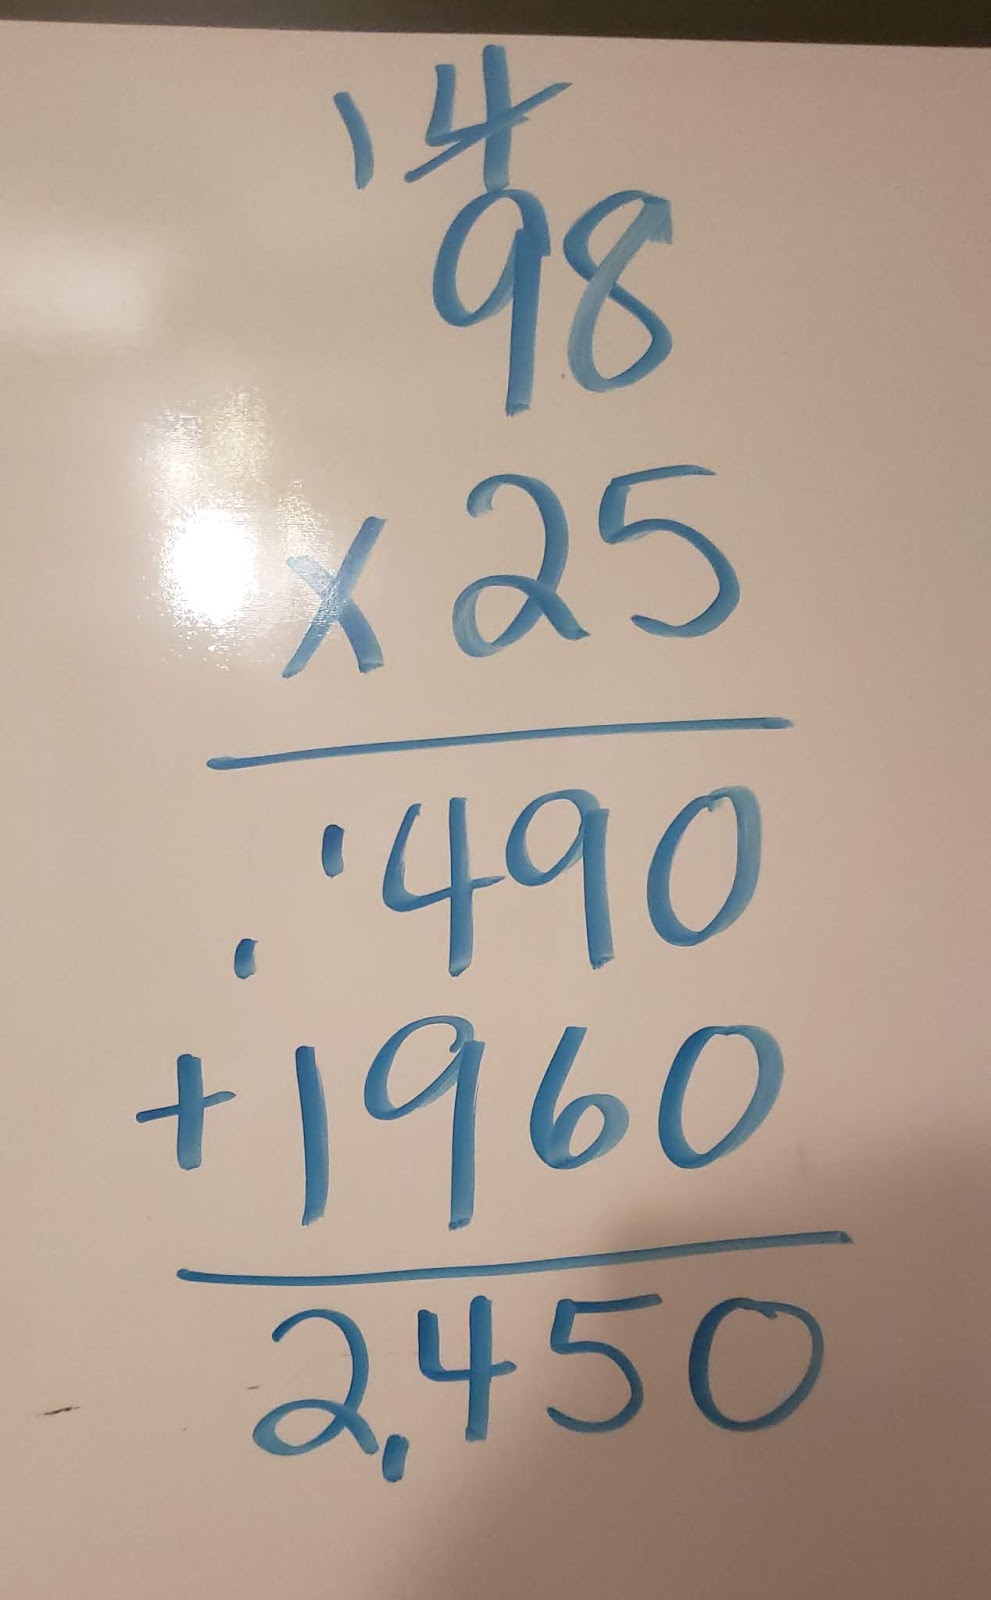 1 4
98
x 25
490
+1960
2,450